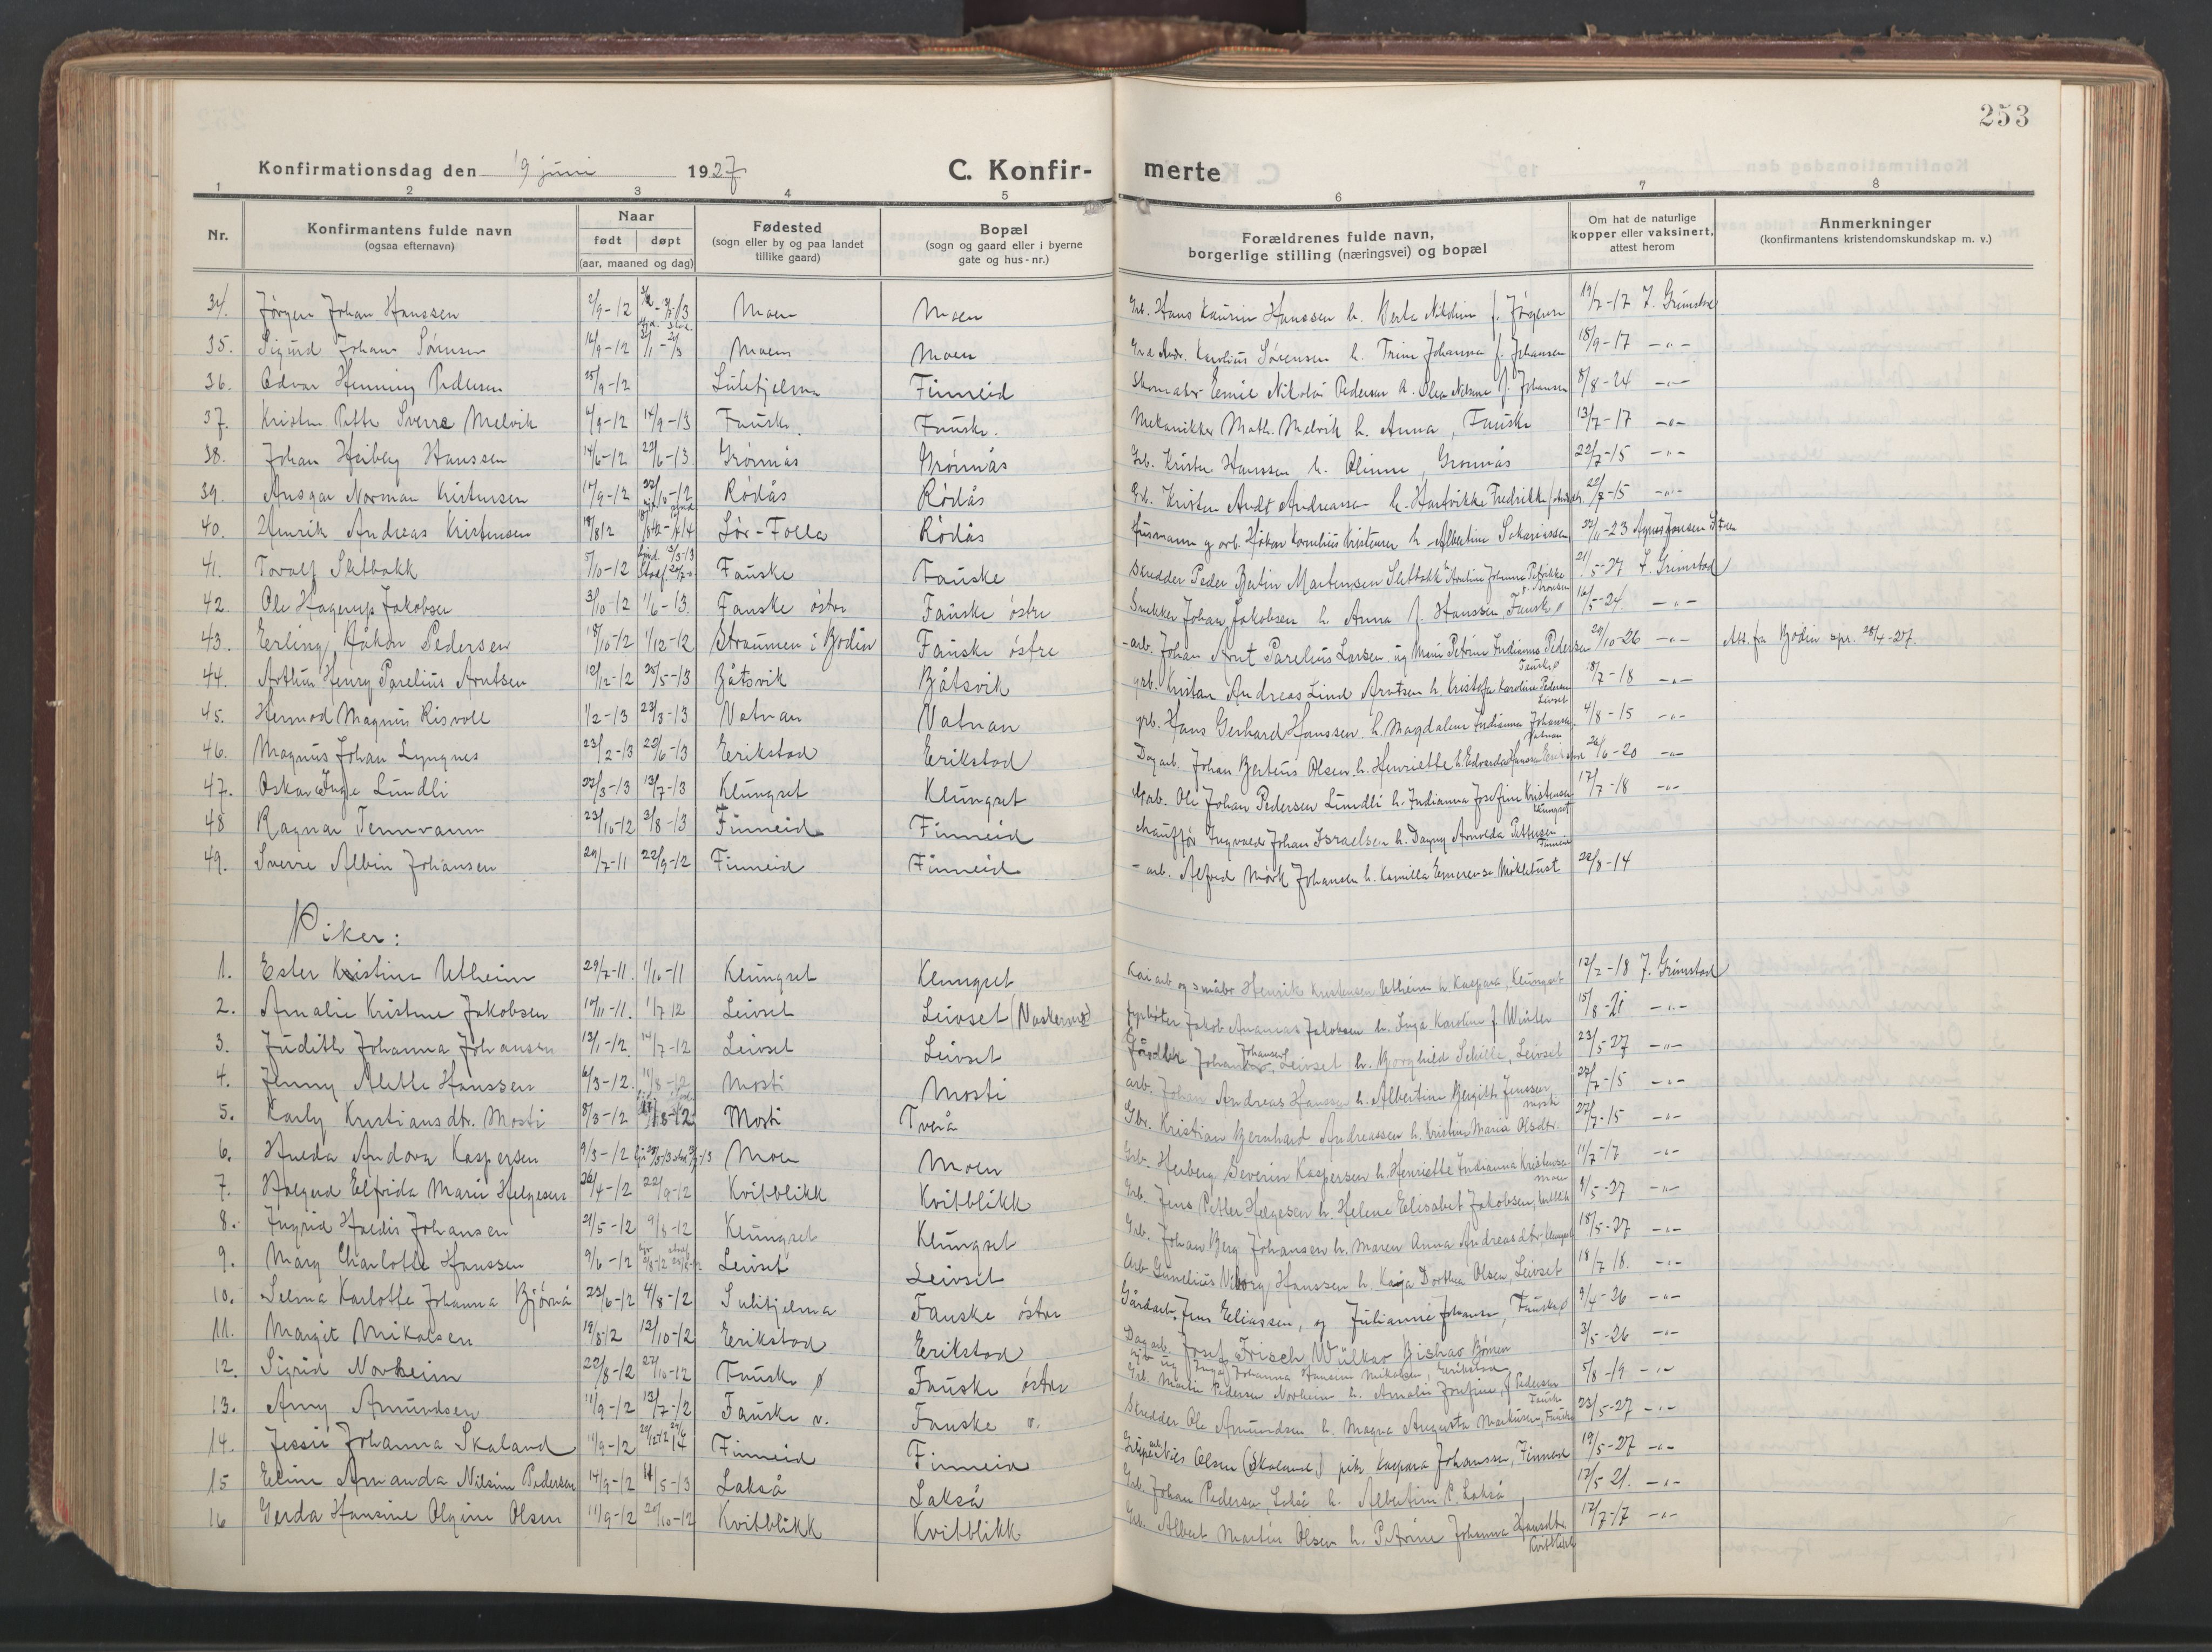 253
Konfirmationsdag den 19 juni 1927 C. Konfir- merte
1 2 3 4 5 6 7 8
Nr. Konfirmantens fulde navn (ogsaa efternavn) Naar født døpt (aar, maaned og dag) Fødested (sogn eller by og paa landet tillike gaard) Bopæl (sogn og gaard eller i byerne gate og hus-nr.) Forældrenes fulde navn, borgerlige stilling (næringsvei) og bopæl Om hat de naturlige kopper eller vaksinert, attest herom Anmerkninger (konfirmantens kristendomskundskap m. v.)
34. Jørgen Johan Hanssen 2/9-12 Moen Moen Hans Hanssen h. Berta f. 19/7-17
35. Sigurd Johan Sørensen 16/9-12 Moen Moen Karolius Sørensen h. Trine Johanna f. Johansen 18/9-17 -"-
36. Odvar Henning Pedersen 25/9-12 Sulitjelma Finneid Skomaker Emil Nikolai Pedersen h. Olea f. Johansen 8/8-24 -"-
37. Petter Sverre Melvik 14/9-13 Fauske. Fauske. Mekanikker Math. Melvik h. Anna, Fauske 13/7-17 -"-
38. Johan Heiberg Hanssen 14/6-12 22/6-13 Grønnås Grønnås Grb. Krister Hanssen h. Oline, Grønnås 22/7-15 -"-
39. Ansgar Norman Kristensen Rødås Rødås Grb. Kristen Andt Andreassen h. Hartvikke Fredrikke 22/7-15 -"-
40. Henrik Andreas Kristensen 18/8 12 Sør-Folla Rødås Husmann og arb. Håkon Kornelius Kristensen h. Albertine Sakariassen 22/11-23
41. Toralf Sletbakk 5/10-12 Fauske Fauske Skredder Peder Bertin Martensen Sletbakk 21/5-27 F. Grimstad
42. Ole Hagerup Jakobsen 3/10-12 1/6-13. Fauske østre Fauske østre Snekker Johan Jakobsen h. Anna f. Hanssen, Fauske ø 16/5-24. -"-
43. Eerling Håkon Pedersen 18/10-12 1/12-12 Straumen i Bodin Fauske østre -arb. Johan Arnt Parelius Larsen og Marie Petrine Indianna Pedersen Fauske ø 29/10-26 -"- Att. fra Bodin spr. 28/4-27.
44. Arthur Henry Parelius Arntsen 12/12-12 25/5-13 Båtsvik Båtsvik grb. Kristian Andreas Lind Arntsen h. Kristofa Karoline Pedersen Leivset 18/7-18 -"-
45. Hermod Magnus Risvoll 1/2-13 23/3-13 Vatnan Vatnan grb. Hans Gerhard Hanssen h. Magdalene Indianna Johansen Vatnan 4/8-15 -"-
46. Magnus Johan Lyngnes 23/2-13 22/6-13 Erikstad Erikstad Dagarb. Johan Berteus Olsen h. Henriette 26/6-20 -"-
47. Oskar Inge Lundli 22/3-13 13/7-13 Klungset Klungset Ole Johan Pedersen Lundli h. Indianna Josefine Kristensen Klungset 17/7-18 -"-
48 Ragnar Tennvann 23/10-12 3/8-13 Finneid Finneid Chauffør Ingvald Johan Israelsen h. Dagny Arnolda Pettersen Finneid
49. Sverre Albin Johansen 29/7-11 22/9-12 Finneid Finneid -arb. Alfred Mørk Johansen h. Kamilla Emerense Mikletust 22/8-14
Piker:
1. Ester Kristine Utheim 29/7-11. 1/10-11 Klungset Klungset Kaiarb. og småbr. Henrik Kristensen Utheim h. Kaspara, Klungset 12/2-18 F. Grimstad
2. Amalie Kristine Jakobsen 10/11-11. 1/7 12 Leivset Leivset Jakob Ananias Jakobsen h. Inga Karoline f. Winter 15/8-21 -"-
3. Judith Johanna Johansen 13/1-12. 14/7-12 Leivset Leivset Johan Johansen, Leivset h. Borghild, Leivset 23/5-27 -"-
4. Jenny Alette Hanssen 6/3-12. 11/8-12 Mosti Mosti arb. Johan Andreas Hanssen h. Albertine Bergitte Jenssen Mosti 27/7-15 -"-
5. Karly Kristiansdtr. Mosti 8/3-12 Mosti Tverå Gbr. Kristian Bernhard Andreassen h. Kristine Maria Olsdtr. 27/7-15 -"-
6. Hulda Andora Kaspersen 9/3-12 Moen Moen Grb. Herberg Severin Kaspersen h. Henriette Indianna Kristensen Moen 11/7-17 -"-
7. Holgerd Elfrida Marie Helgesen 26/4-12 22/9-12 Kvitblikk Kvitblikk Grb. Jens Petter Helgesen h. Helene Elisabet Jakobsen, Kvitblikk 9/5-27 -"-
8. Ingrid Hældis Johansen 21/5-12 9/8-12 Klungset Klungset Grb. Johan Berg Johansen h. Maren Anna Andreasdtr., Klungset 18/5-27 -"-
9. Mary Charlotte Hanssen 9/6-12 Leivset Leivset Arb. Gunelius Hanssen h. Kaja Dorthea Olsen, Leivset 18/7 18. -"-
10. Selma Karlotte Johanna Bjørnå 23/6-12 4/8-12 Sulitjelma Fauske østre Gårdarb. Jens Eliassen, og Julianne Johansen, Fauske ø 9/4-26 -"-
11. Margit Mikalsen 19/8-12 12/10-12 Erikstad Erikstad Dagarb. Josef Frisch Inga Johanna Hansine Mikalsen, Erikstad 3/5-26 -"-
12. Sigrid Norheim 22/8-12 27/10-12 Fauske ø Fauske østre Grb. Martin Pedersen Norheim h. Amalie Josefine f. Pedersen Fauske 5/8-19 -"-
13. Amy Amundsen 11/9-12 Fauske v. Fauske v. Skredder Ole Amundsen h. Magna Augusta Markussen, Fauske 23/5-27 -"-
14. Jessie Johanna Skaland 11/9-12 Finneid Finneid Nils Olsen (Skaland) pike Kaspara Johanssen, Finneid 19/5-27 -"-
15 Eline Amanda Nilsine Pedersen 14/9-12 11/5-13 Lakså Lakså Grb. Johan Pedersen, Lakså h. Albertine P. Lakså 12/5 21. -"-
16 Gerda Hansine Olgine Olsen 11/9-12 20/10-12 Kvitblikk Kvitblikk Grb. Albert Martin Olsen h. Petrine Johanna Hansdtr. Kvitblikk 17/7-17 -"-